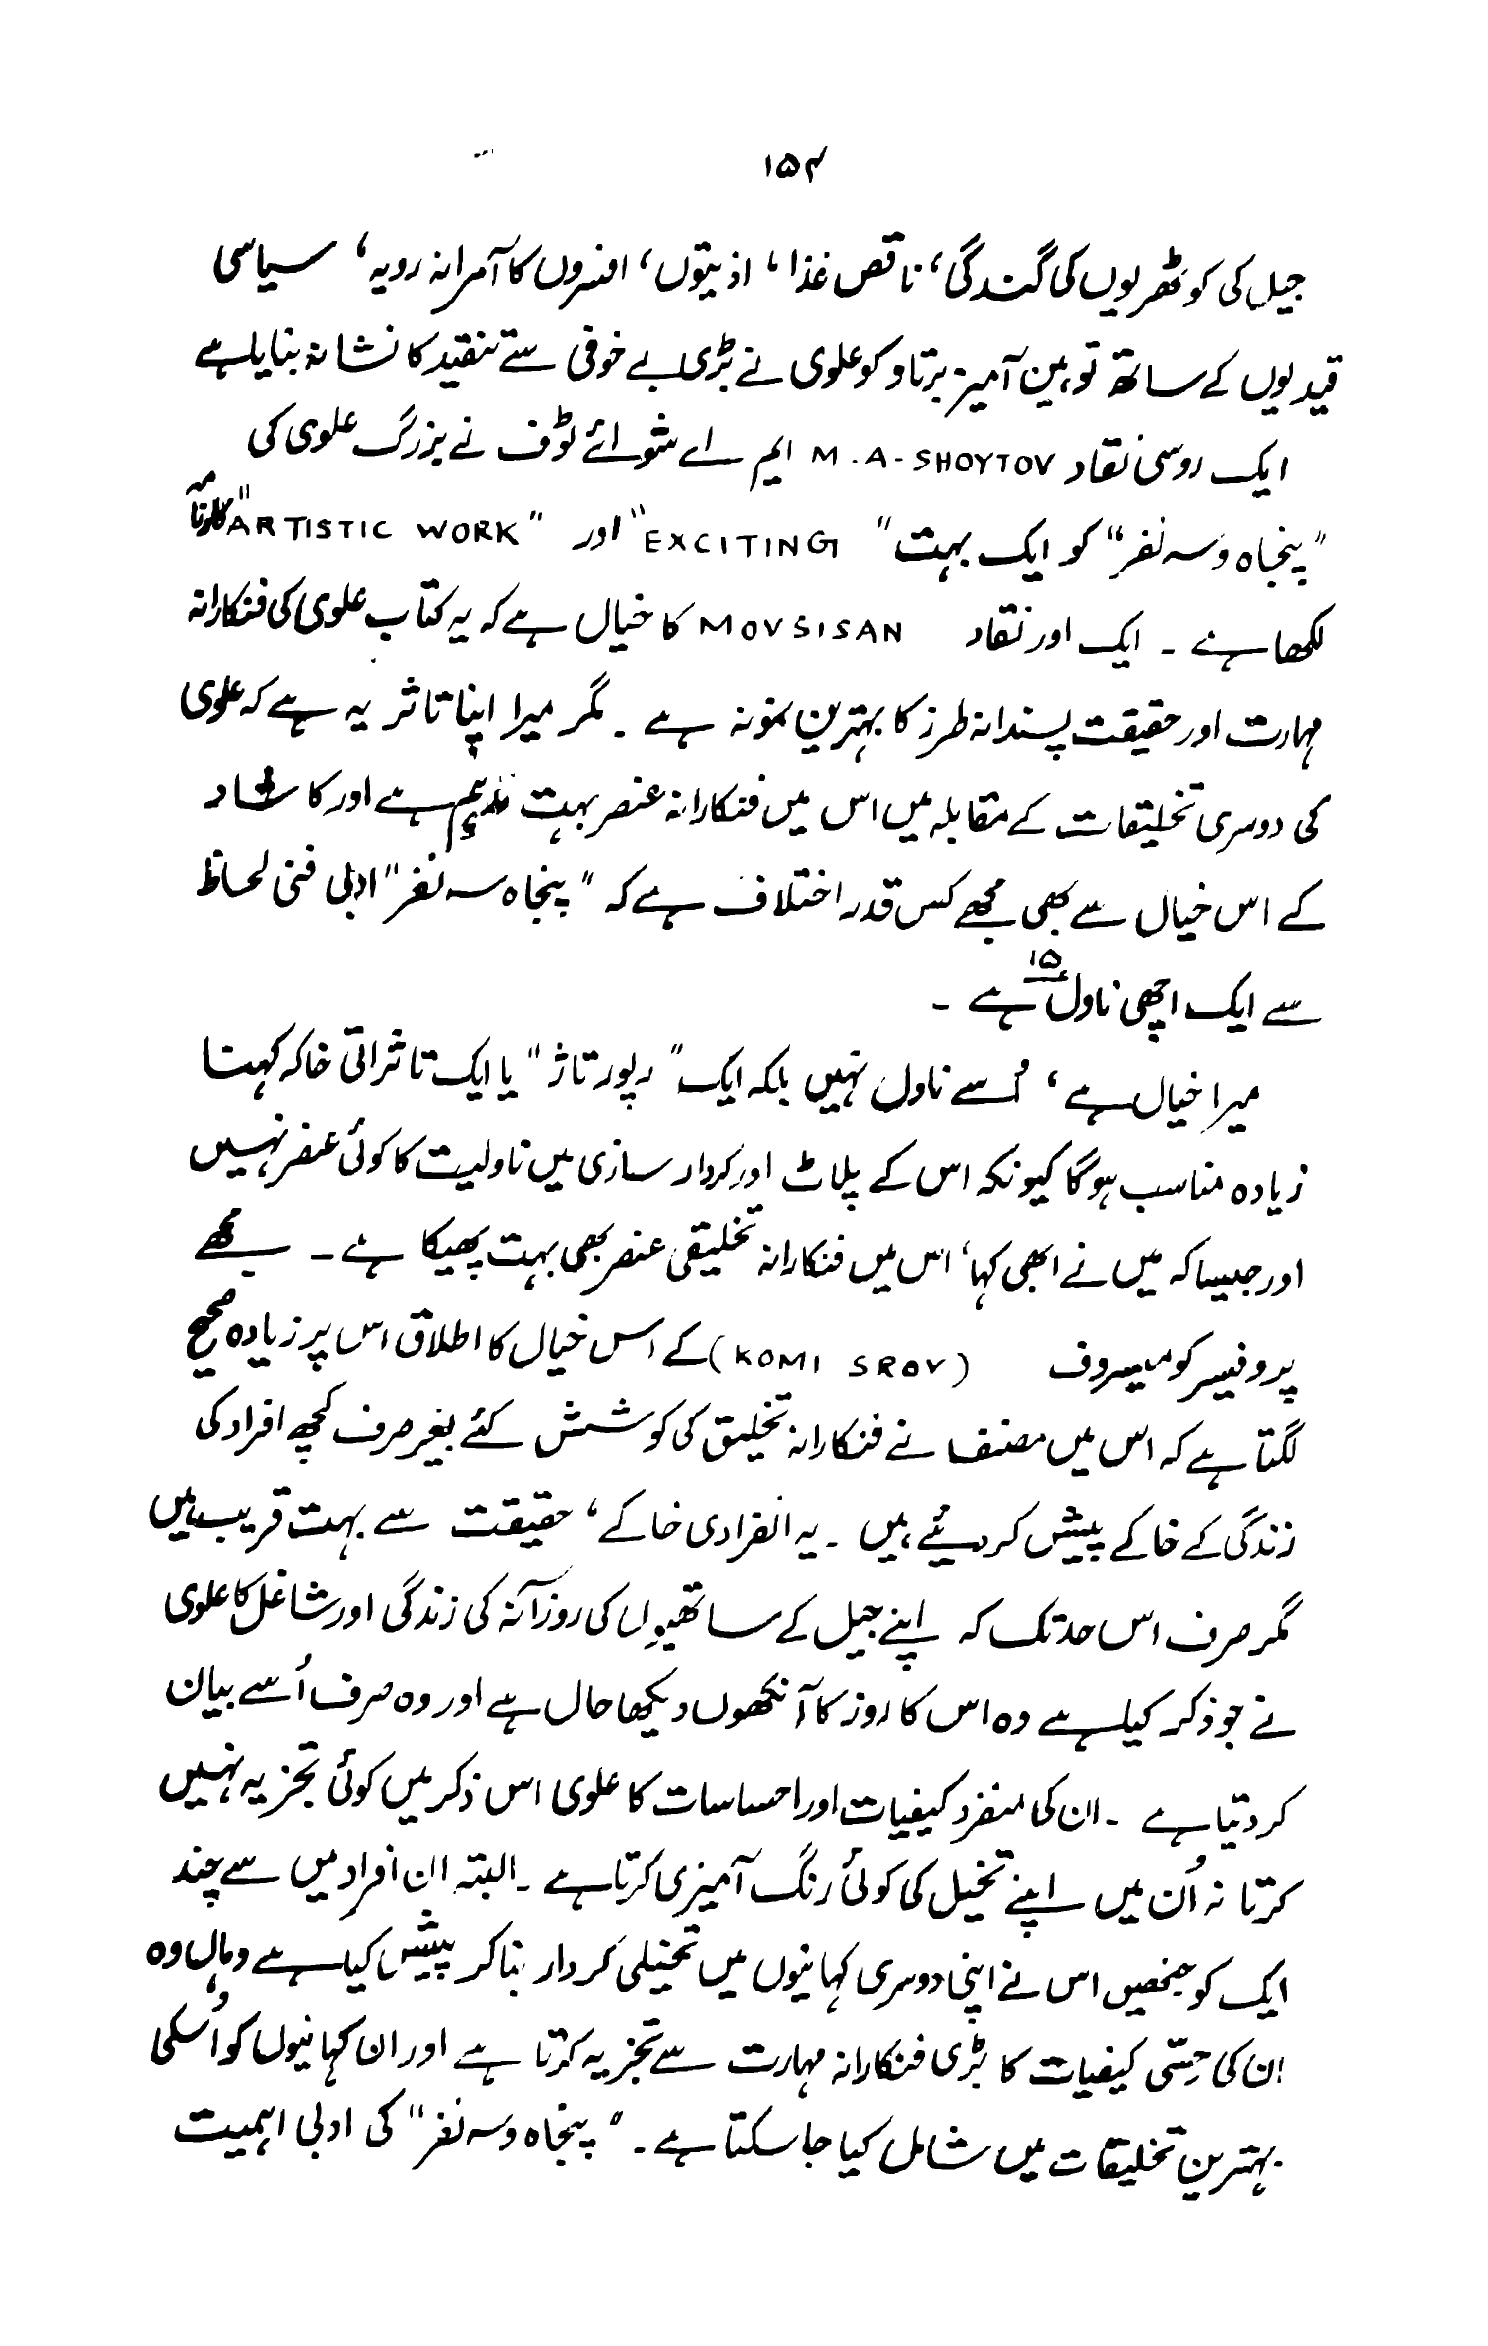 ۱۵۴
جیل کی کوٹھریوں کی گندگی، ناقص غذا، اذیتوں، افسروں کا آمرانہ رویہ، سیاسی
قیدیوں کے ساتھ توہین آمیز برتاو کو علوی نے بڑی بے خوفی سے تنقید کا نشانہ بنایا ہے
ایک روسی نقاد M.A-SHOYTOV ایم اے شوائے لوف نے بزرگ علوی کی
"پنجاہ وسہ نفر" کو ایک بہت "EXCITING" اور "ARTISTIC WORK" کارنامہ
لکھا ہے ۔ ایک اور نقاد MOVSISAN کا خیال ہے کہ یہ کتاب علوی کی فنکارانہ
مہارت اور حقیقت پسندانہ طرز کا بہترین نمونہ ہے ۔ مگر میرا اپنا تاثر یہ ہے کہ علوی
کی دوسری تخلیقات کے مقابلہ میں اس میں فنکارانہ عنصر بہت مدہم ہے اور کا شاد
کے اس خیال سے بھی مجھے کس قدر اختلاف ہے کہ "پنجاہ سہ نفر" ادبی فنی لحاظ
سے ایک اچھی ناول ۱۵ ہے ۔
میرا خیال ہے، اُسے ناول نہیں بلکہ ایک "رپورتاژ" یا ایک تاثراتی خاکہ کہنا
زیادہ مناسب ہوگا کیونکہ اس کے پلاٹ اور کردار سازی میں ناولیت کا کوئی عنصر نہیں
اور جیسا کہ میں نے ابھی کہا، اس میں فنکارانہ تخلیقی عنصر بھی بہت پھیکا ہے ۔ مجھے
پروفیسر کومیسروف (KOMI SROV) کے اس خیال کا اطلاق اس پر زیادہ صحیح
لگتا ہے کہ اس میں مصنف نے فنکارانہ تخلیق کی کوشش کئے بغیر صرف کچھ افراد کی
زندگی کے خاکے پیش کر دیئے ہیں ۔ یہ انفرادی خاکے، حقیقت سے بہت قریب ہیں
مگر صرف اس حد تک کہ اپنے جیل کے ساتھیوں کی روزآنہ کی زندگی اور شاغل کا علوی
نے جو ذکر کیا ہے وہ اس کا روز کا آنکھوں دیکھا حال ہے اور وہ صرف اُسے بیان
کر دیتا ہے ۔ ان کی منفرد کیفیات اور احساسات کا علوی اس ذکر میں کوئی تجزیہ نہیں
کرتا نہ اُن میں اپنے تخیل کی کوئی رنگ آمیزی کرتا ہے ۔ البتہ ان افراد میں سے چند
ایک کو جنھیں اس نے اپنی دوسری کہانیوں میں تخیلی کردار بنا کر پیش کیا ہے وہاں وہ
ان کی حِسّی کیفیات کا بڑی فنکارانہ مہارت سے تجزیہ کرتا ہے اور ان کہانیوں کو اُسکی
بہترین تخلیقات میں شامل کیا جا سکتا ہے ۔ "پنجاہ وسہ نفر" کی ادبی اہمیت